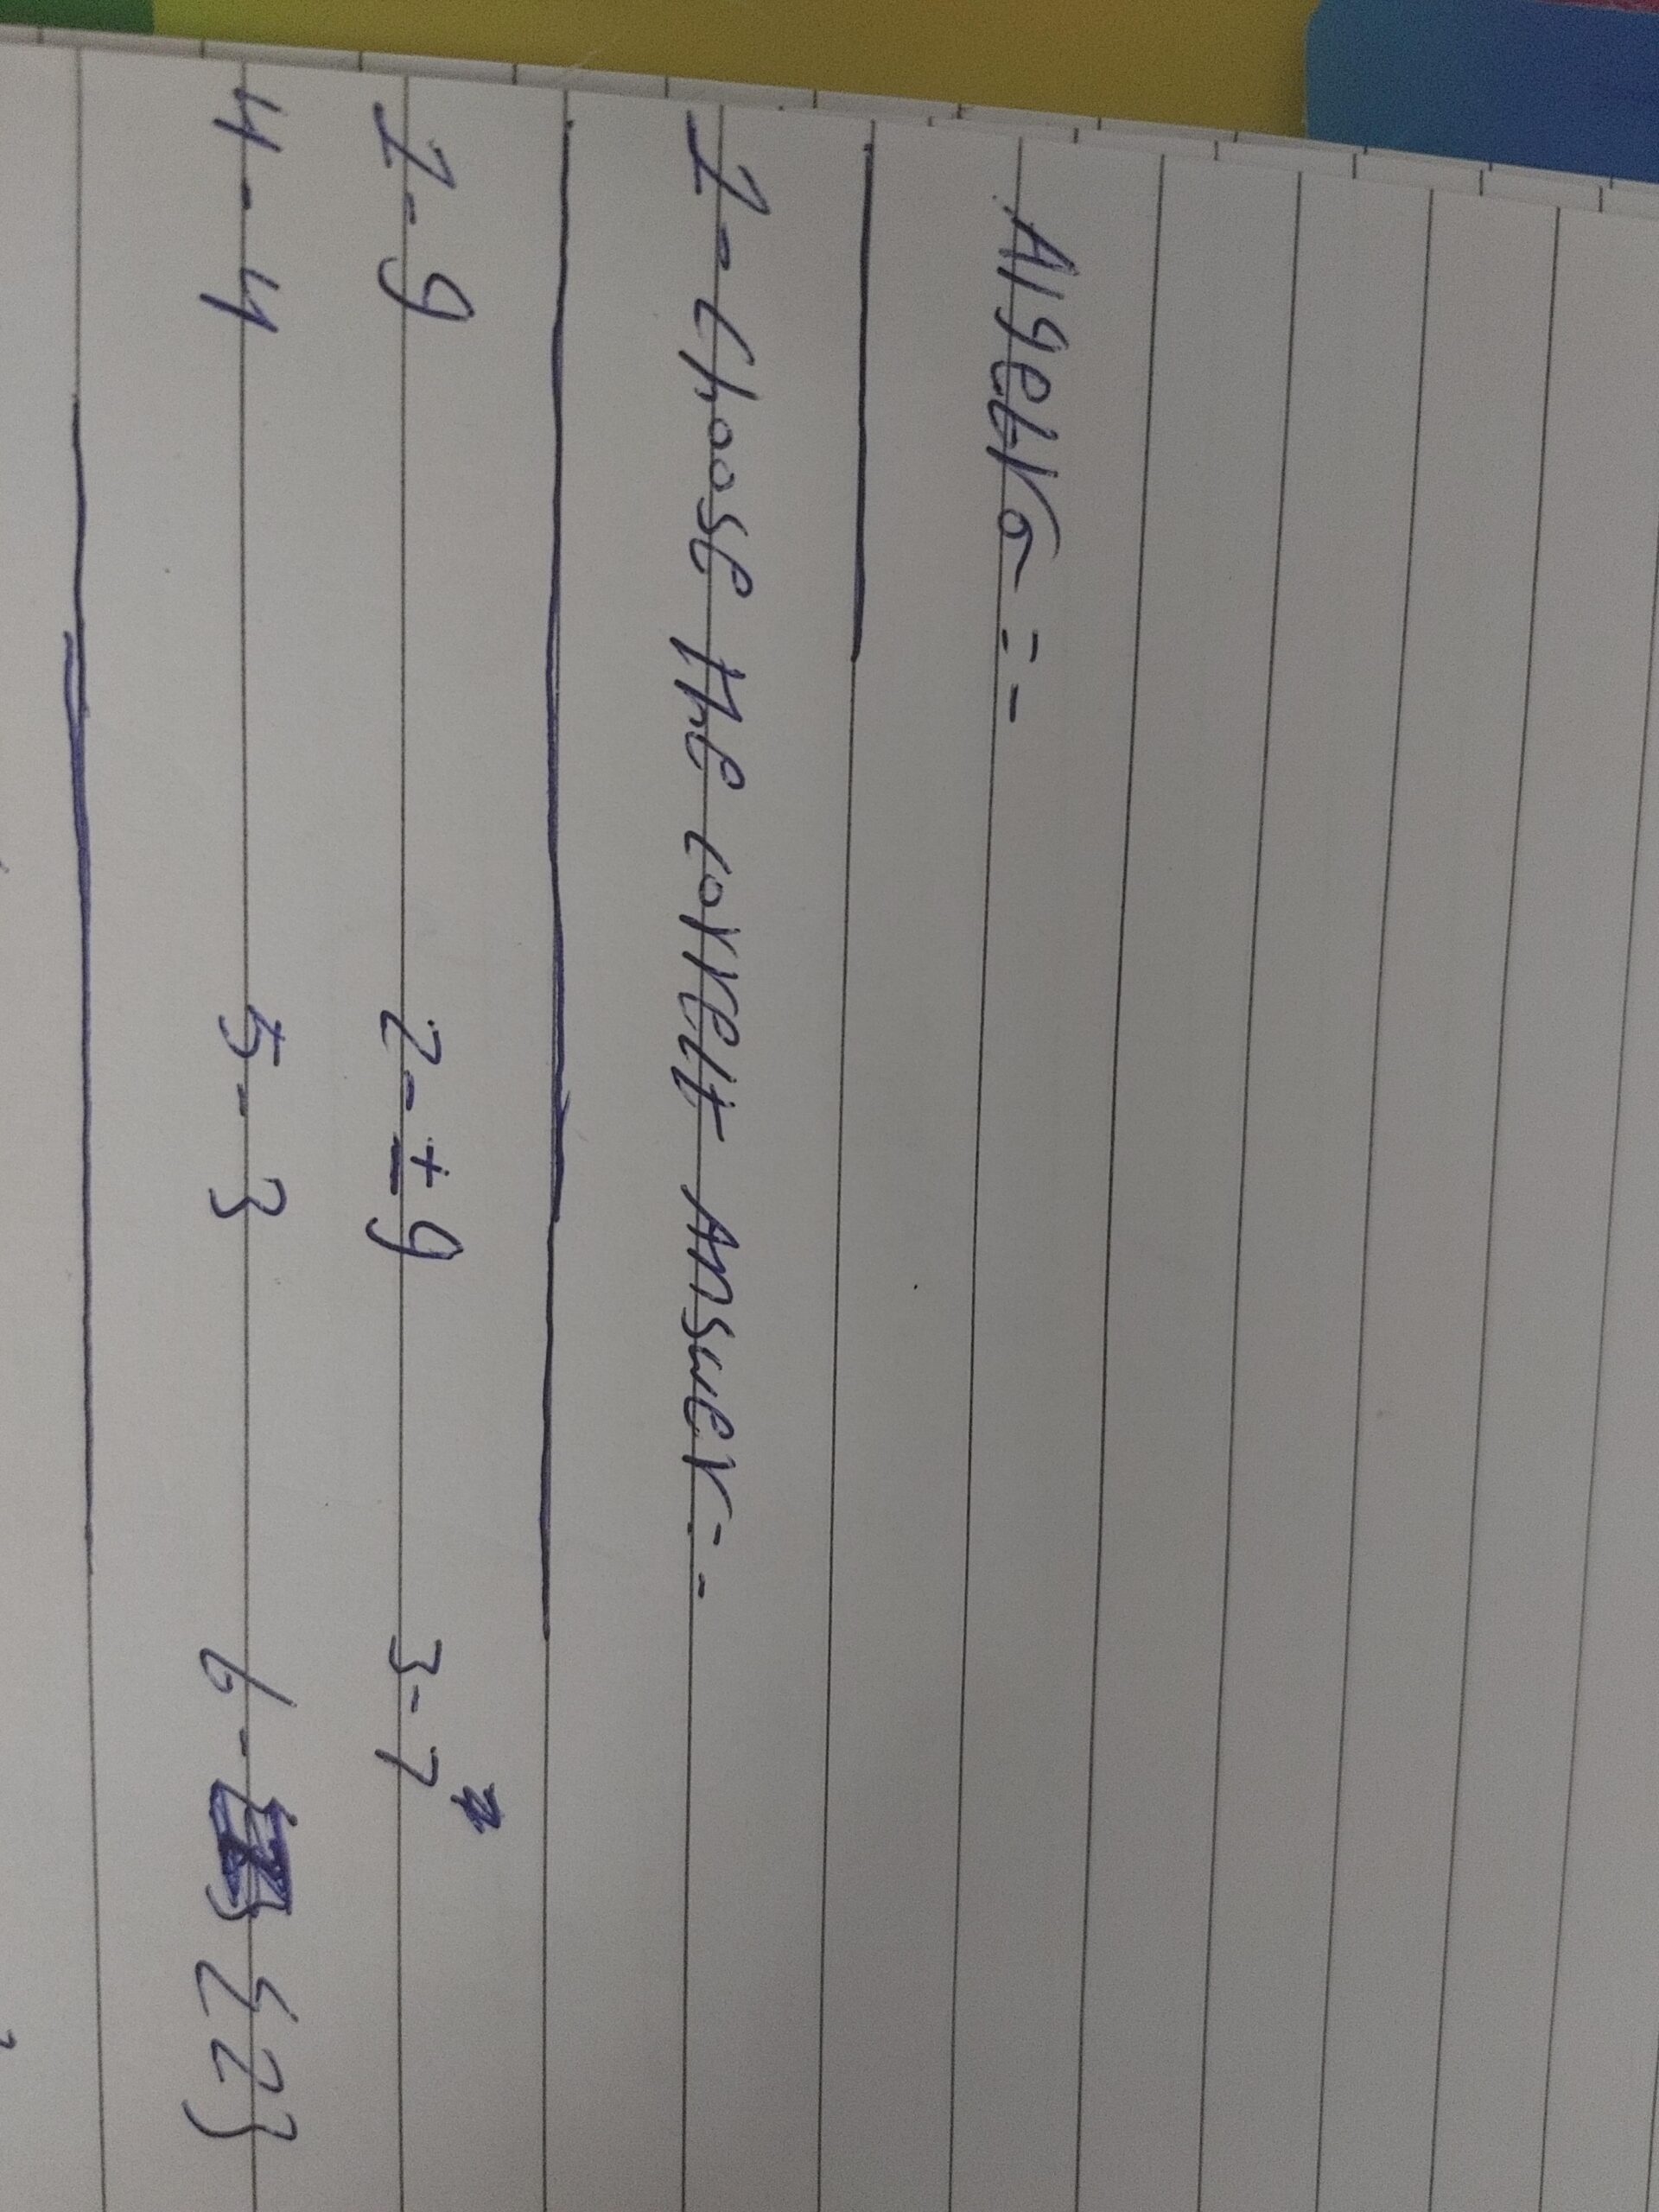 Algebra :-
1- Choose the correct Answer :-
1- 9 2- ±9 3- 7
4- 4 5- 3 6- {2}